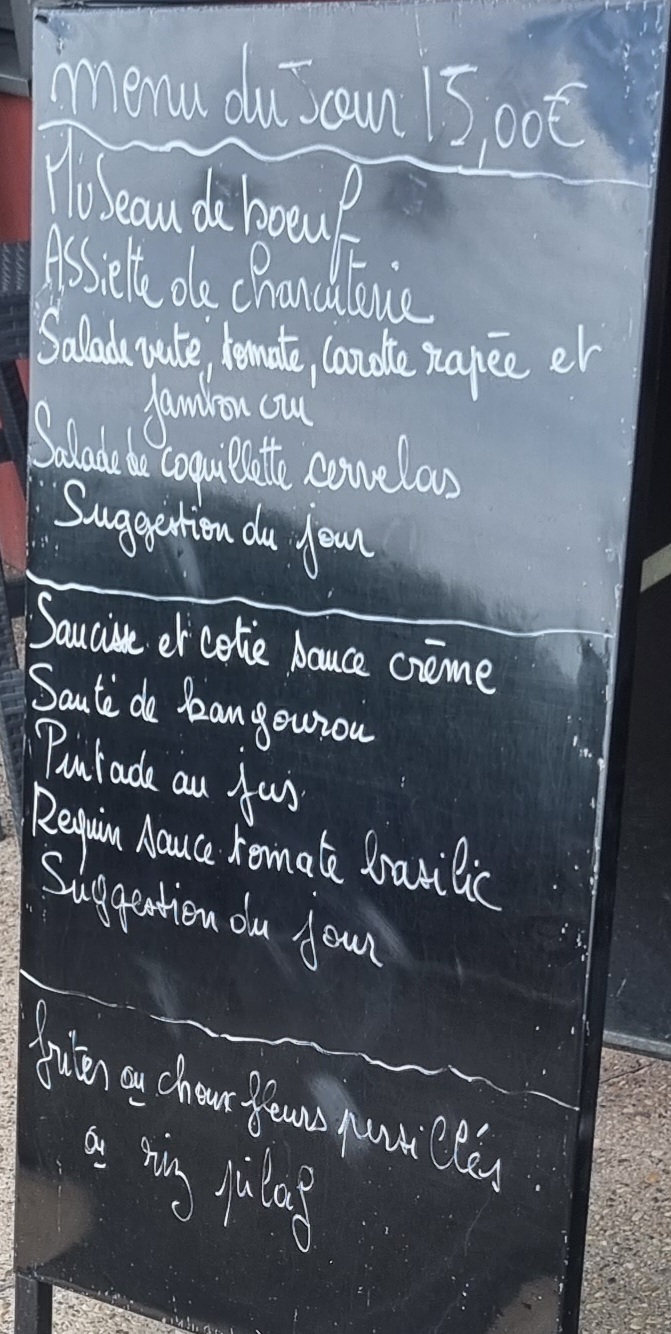 menu du Jour 15,00€
Museau de boeuf
Assiette de charcuterie
Salade verte, tomate, carotte rapée et
jambon cru
Salade de coquillette cervelas
Suggestion du jour
Saucisse et cotie sauce crème
Sauté de kangourou
Pintade au jus
Requin sauce tomate basilic
Suggestion du jour
frites ou choux fleurs persillés
ou riz pilaf